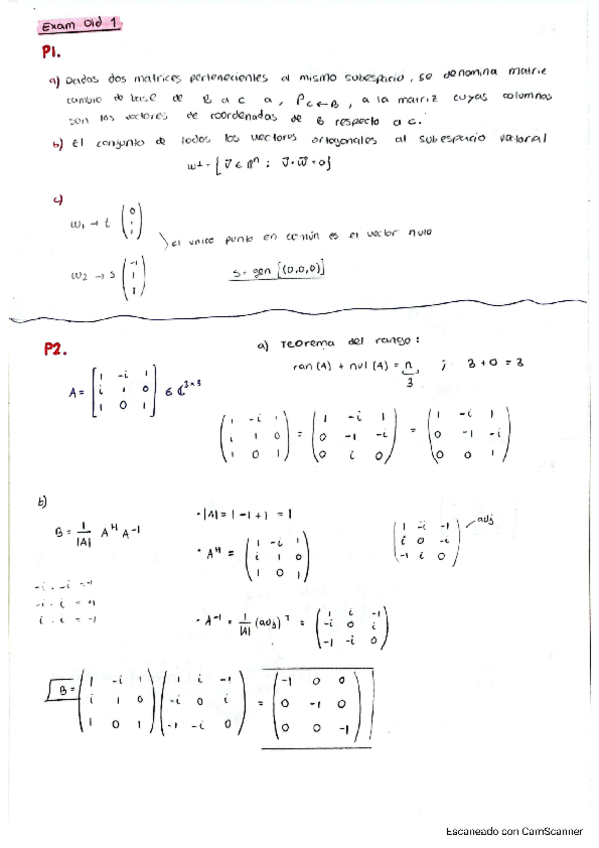 Exam Old 1
P1.
a) Dadas dos matrices pertenecientes al mismo subespacio, se denomina matriz
cambio de base de B a C a, P C←B, a la matriz cuyas columnas
son los vectores de coordenadas de B respecto a C.
b) El conjunto de todos los vectores ortogonales al subespacio vectorial
W⊥ = { v⃗ ∈ ℝⁿ ; v⃗ · w⃗ = 0 }
c)
w₁ → t (0 1 1)
el unico punto en común es el vector nulo
w₂ → s (-1 1 1)
s = gen [(0,0,0)]
P2.
a) Teorema del rango:
ran(A) + nul(A) = n ; 3 + 0 = 3
3
A = [1 -i 1; i 1 0; 1 0 1] ∈ ℂ³ˣ³
(1 -i 1; i 1 0; 1 0 1) = (1 -i 1; 0 -1 -i; 0 i 0) = (1 -i 1; 0 -1 -i; 0 0 1)
b)
B = 1/|A| Aᴴ A⁻¹
· |A| = 1 - 1 + 1 = 1
· Aᴴ = (1 -i 1; i 1 0; 1 0 1)
(1 -i -1; i 0 -i; -1 i 0) adj
-i · -i = -1
-i · i = +1
i · i = -1
· A⁻¹ = 1/|A| (adj)ᵀ = (1 i -1; -i 0 i; -1 -i 0)
B = (1 -i 1; i 1 0; 1 0 1) (1 i -1; -i 0 i; -1 -i 0) = (-1 0 0; 0 -1 0; 0 0 -1)
Escaneado con CamScanner